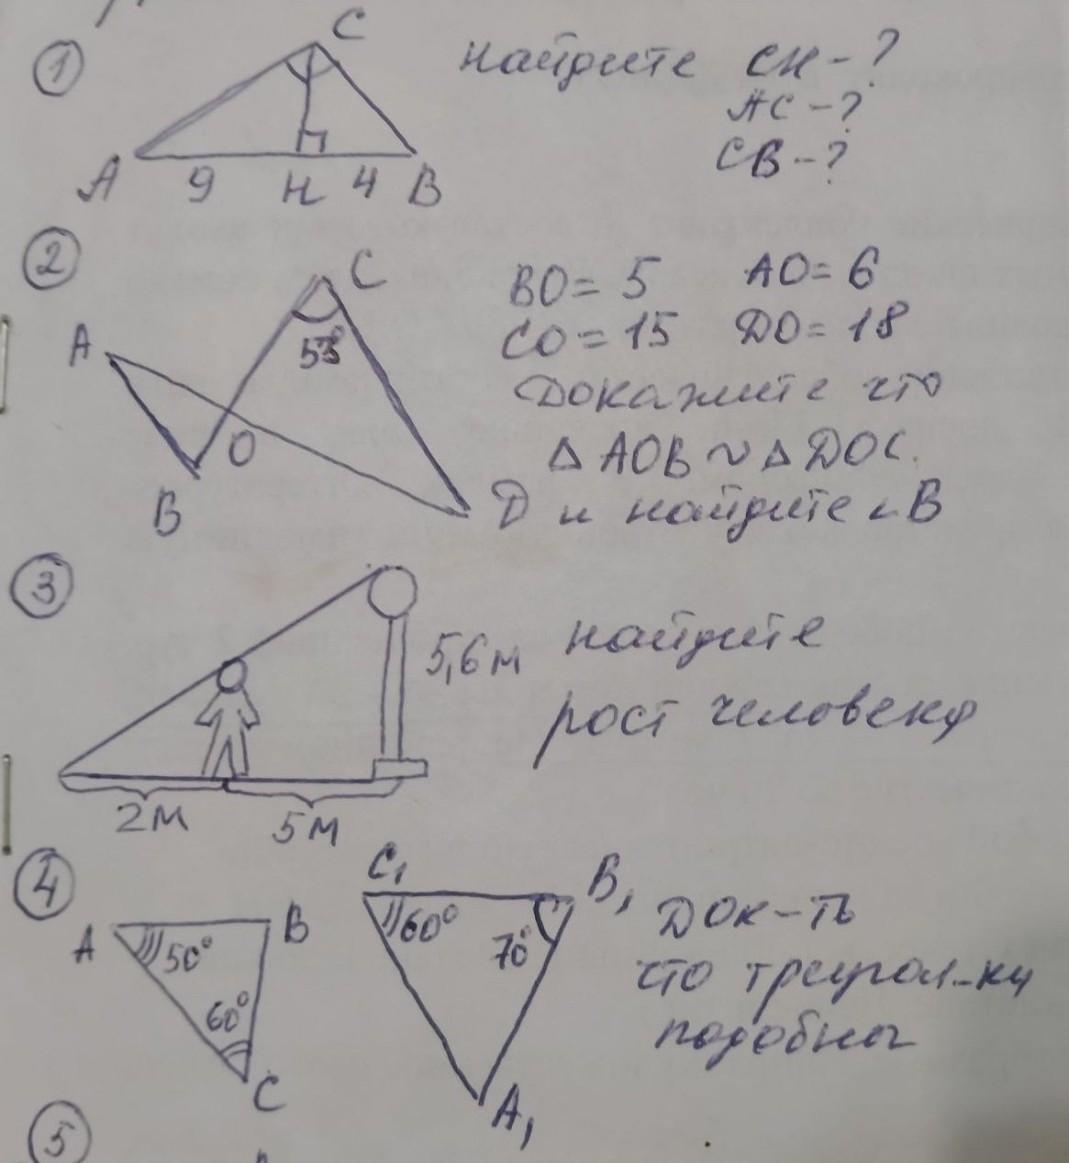 ① C найдите CH-?
AC-?
CB-?
A 9 H 4 B
② C BO=5 AO=6
A 53° CO=15 DO=18
Докажите что
O ΔAOB ~ ΔDOC.
B D и найдите ∠B
③
5,6м найдите
рост человека
2м 5м
④ C₁ B₁ Док-ть
A B 60° 70°
50° что треугол-ки
60° подобны
C A₁
⑤